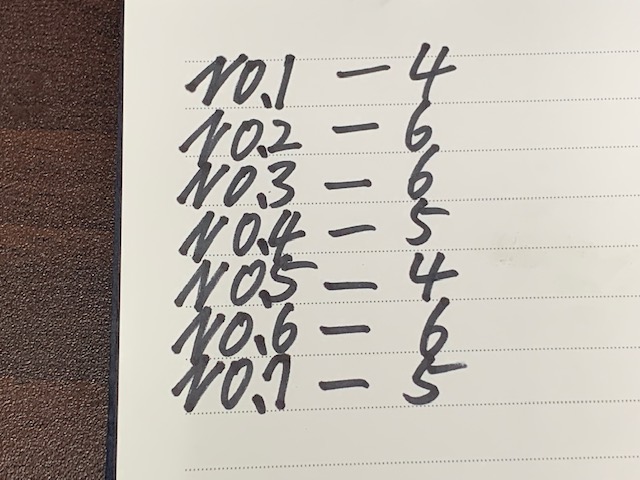 NO.1 - 4
NO.2 - 6
NO.3 - 6
NO.4 - 5
NO.5 - 4
NO.6 - 6
NO.7 - 5